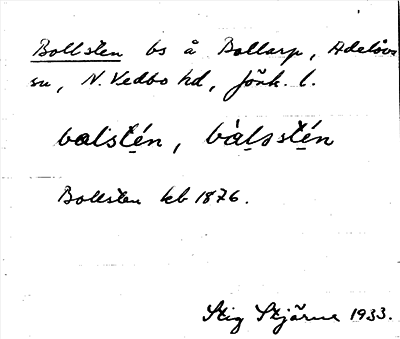 Bollsten bs å Bollarp, Adelövs
sn, N. Vedbo hd, Jönk. l.
balstén, bàlsstén
Bollsten kb 1876.
Stig Skjärne 1933.